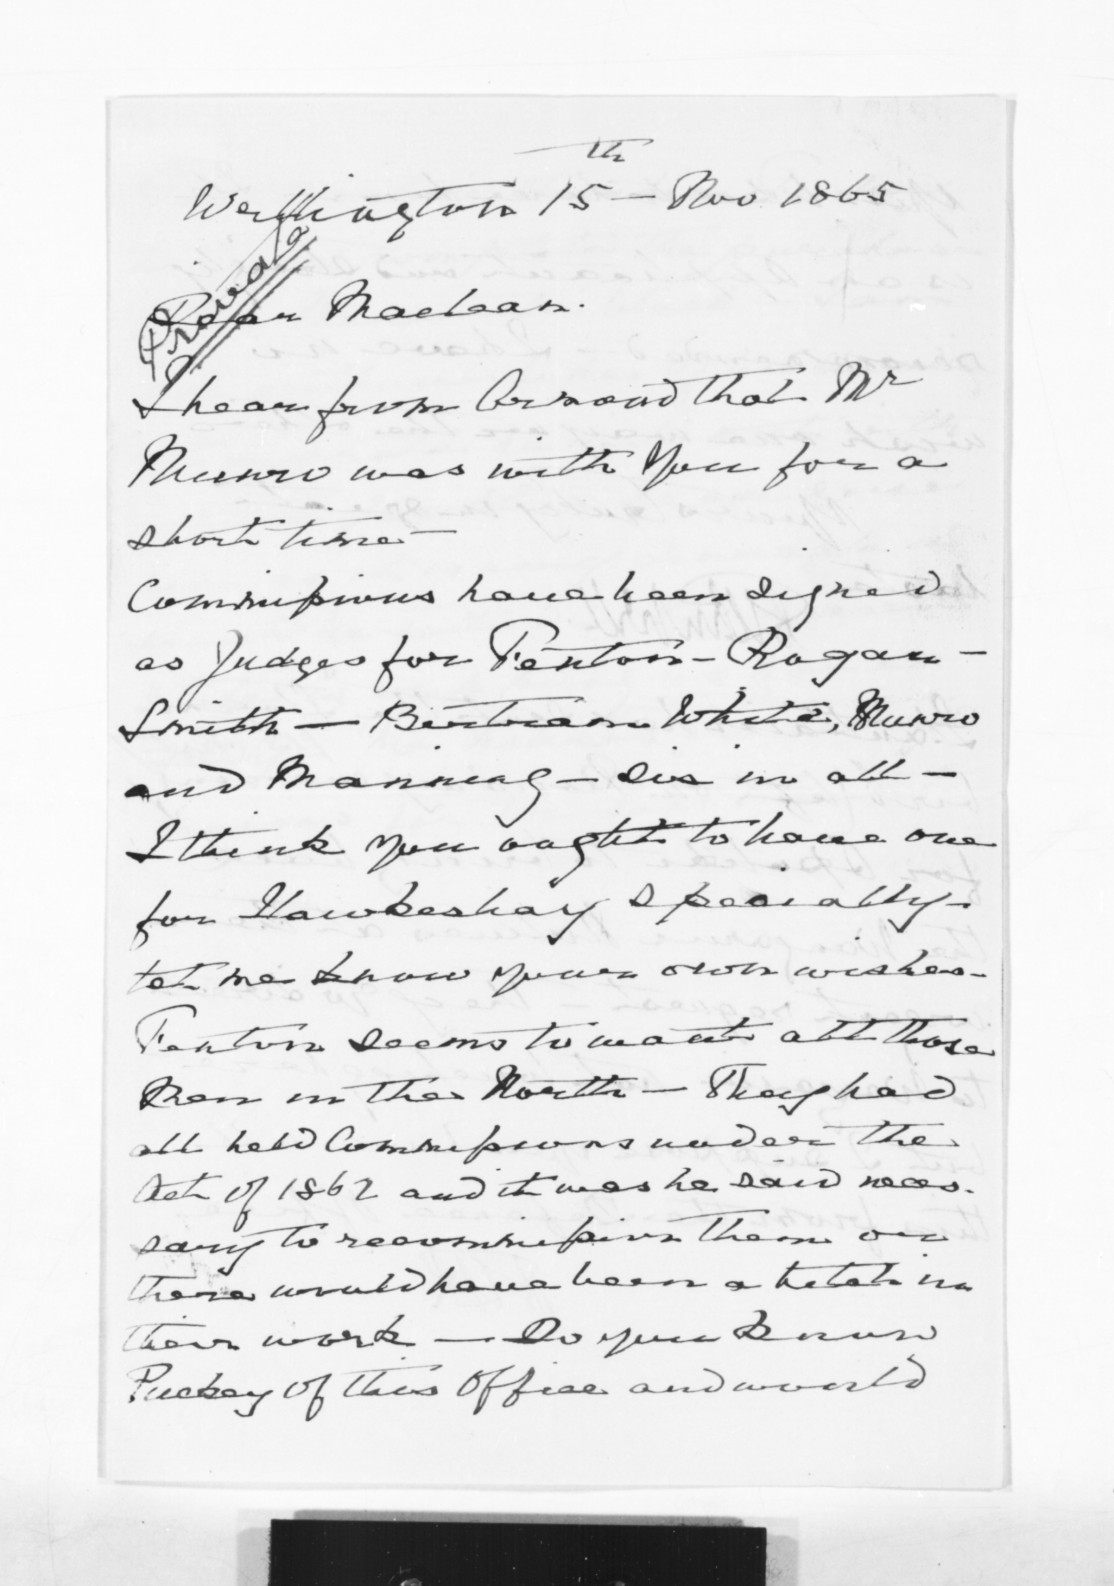 Wellington 15th Nov 1865
Private
Dear Maclean.
I hear from Armand that Mr
Munro was with you for a
short time—
Commissions have been signed
as Judges for Fenton – Rogan –
Smith – Bertram White, Munro
and Manning – six in all –
I think you ought to have one
for Hawkesbay specially–
let me know your own wishes–
Fenton seems to want all those
men in the North – They had
all held Commissions under the
Act of 1862 and it was he said neces-
sary to recommission them or
there would have been a hitch in
their work – Do you know
Puckey of this Office and would